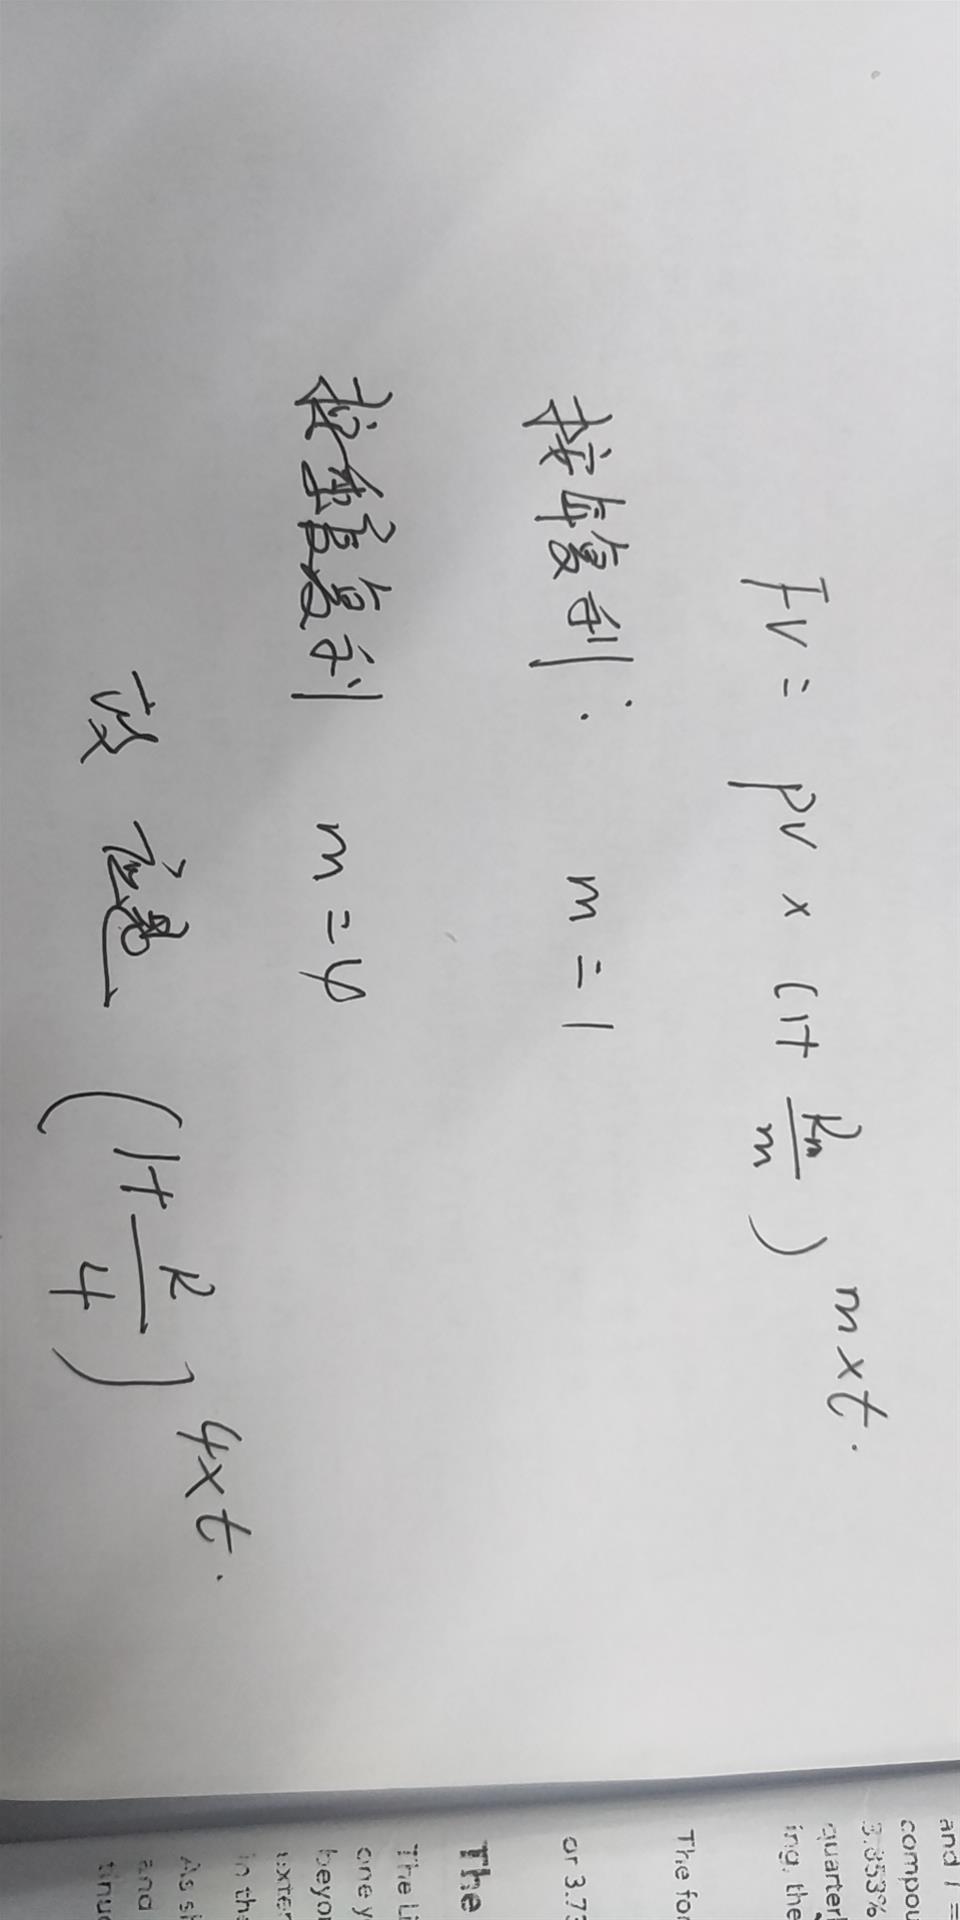 FV = PV x (1+ Rm/m) mxt.
按年复利: m = 1
按季度复利 m = 4
故 应是 (1+ R/4) 4xt.
and
compou
3.853%
quarterl
ing, the
The for
or 3.73
The
The Li
one y
beyo
exter
in the
As si
and
tinuo